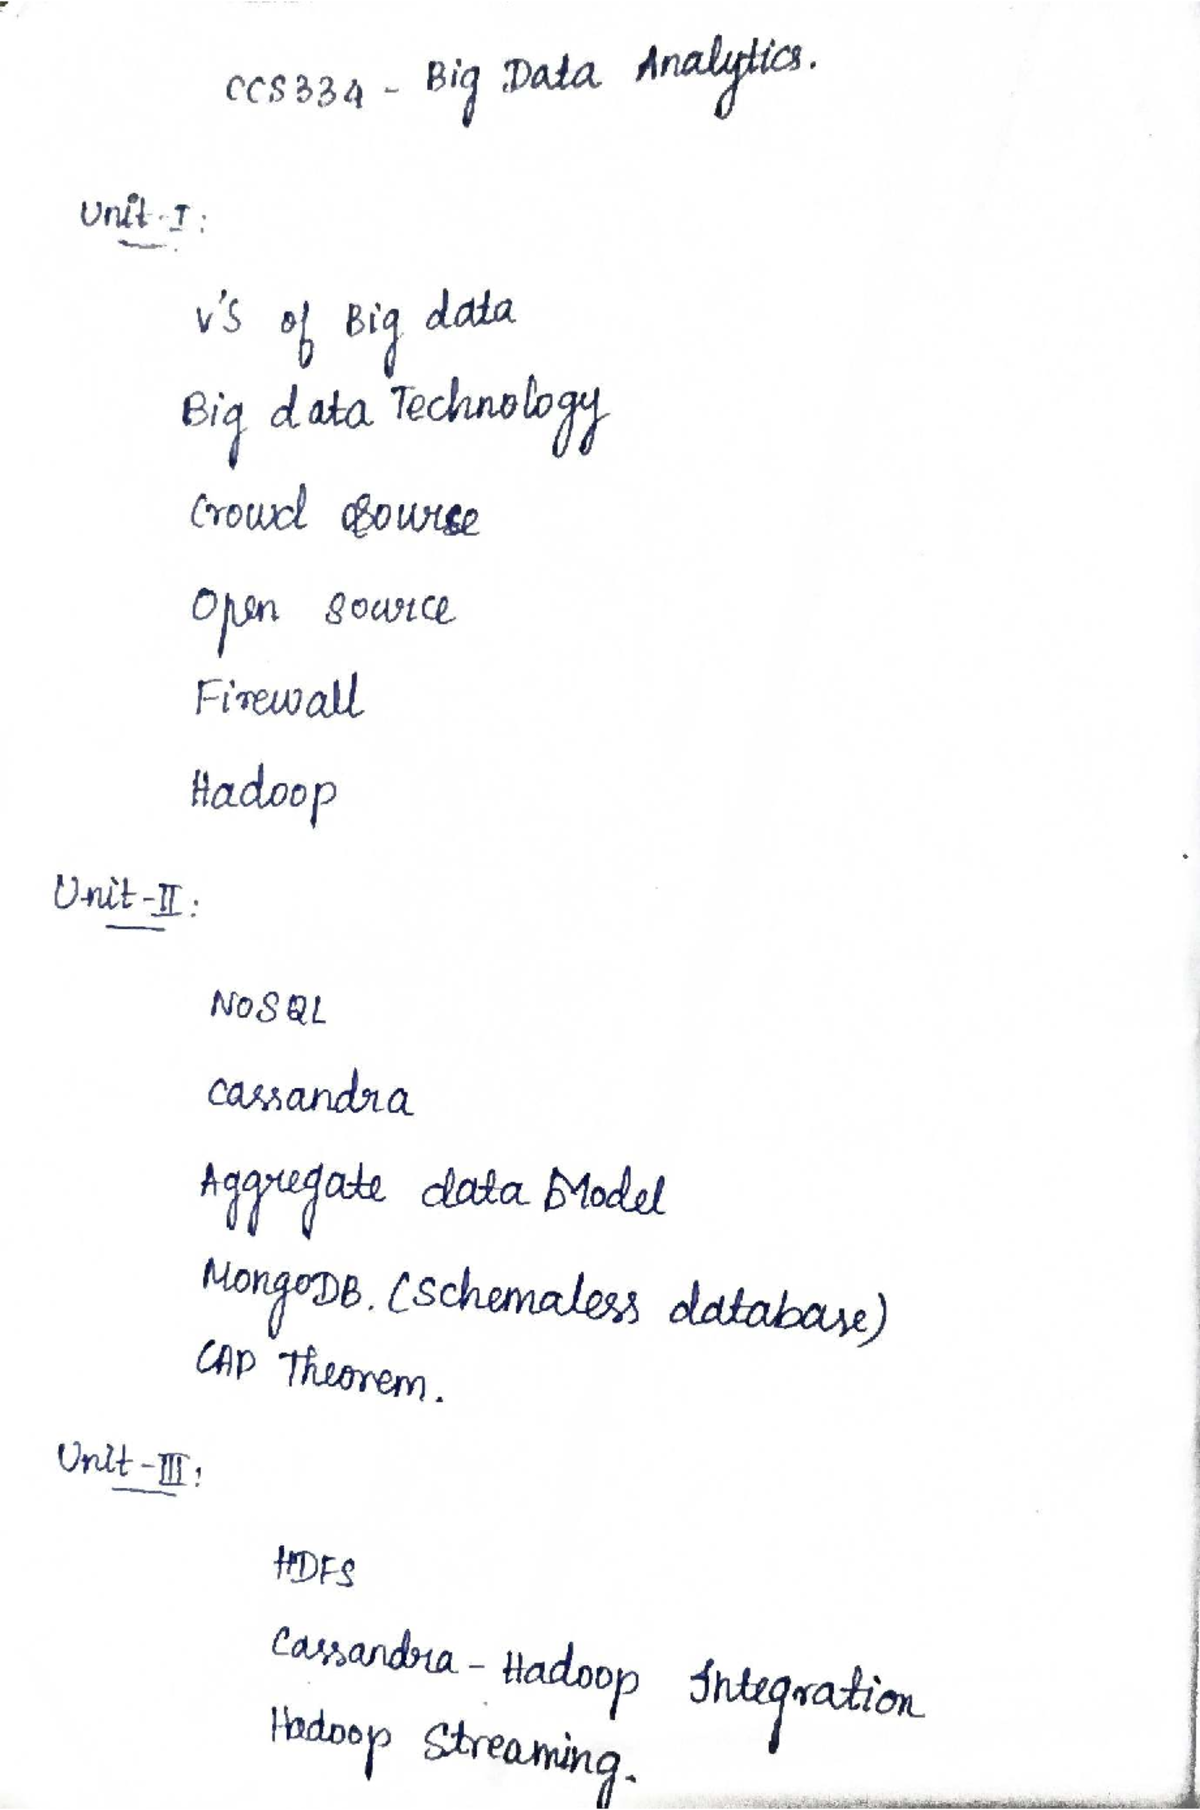 CCS334 - Big Data Analytics.
Unit-I:
V'S of Big data
Big data Technology
Crowd Source
Open source
Firewall
Hadoop
Unit-II:
NOSQL
Cassandra
Aggregate data Model
MongoDB. (Schemaless database)
CAP Theorem.
Unit-III:
HDFS
Cassandra - Hadoop Integration
Hadoop Streaming.